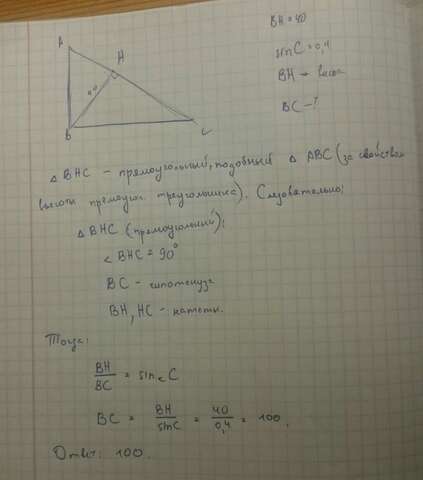 BH = 40
sin C = 0,4
BH – высота
BC – ?
A
H
40
B
C
△ BHC – прямоугольный, подобный △ ABC (за свойством
высоты прямоуг. треугольника). Следовательно:
△ BHC (прямоугольный):
< BHC = 90°
BC – гипотенуза
BH, HC – катеты.
Тогда:
BH/BC = sin<C
BC = BH/sinC = 40/0,4 = 100.
Ответ: 100.